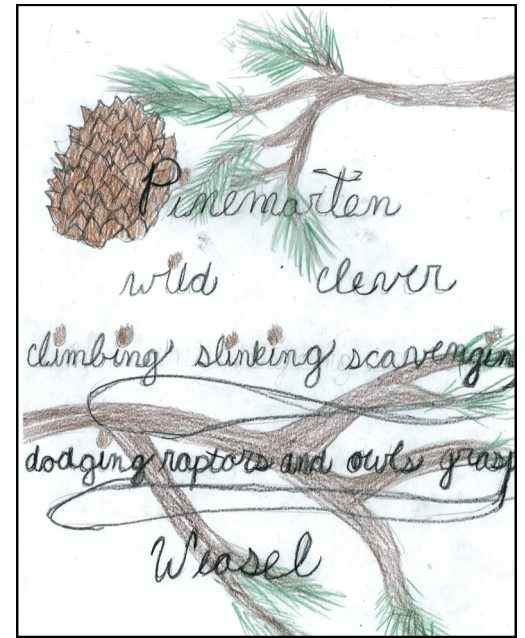 Pinemarten
wild clever
climbing slinking scavengin
dodging raptors and owls grasp
Weasel